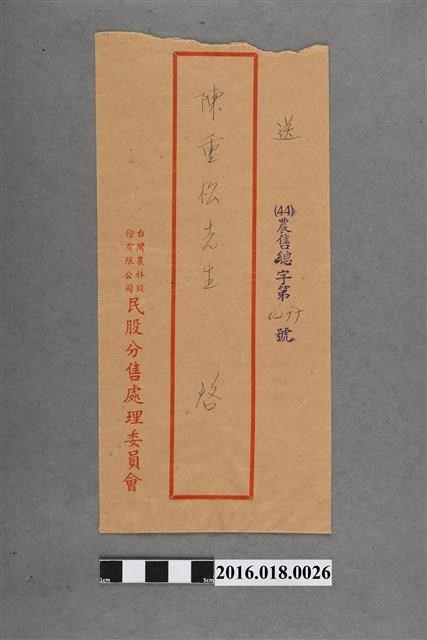 送
(44)農信總字第　號
陳重松先生　啓
台灣農林股
份有限公司
民股分售處理委員會
1cm 5cm
2016.018.0026